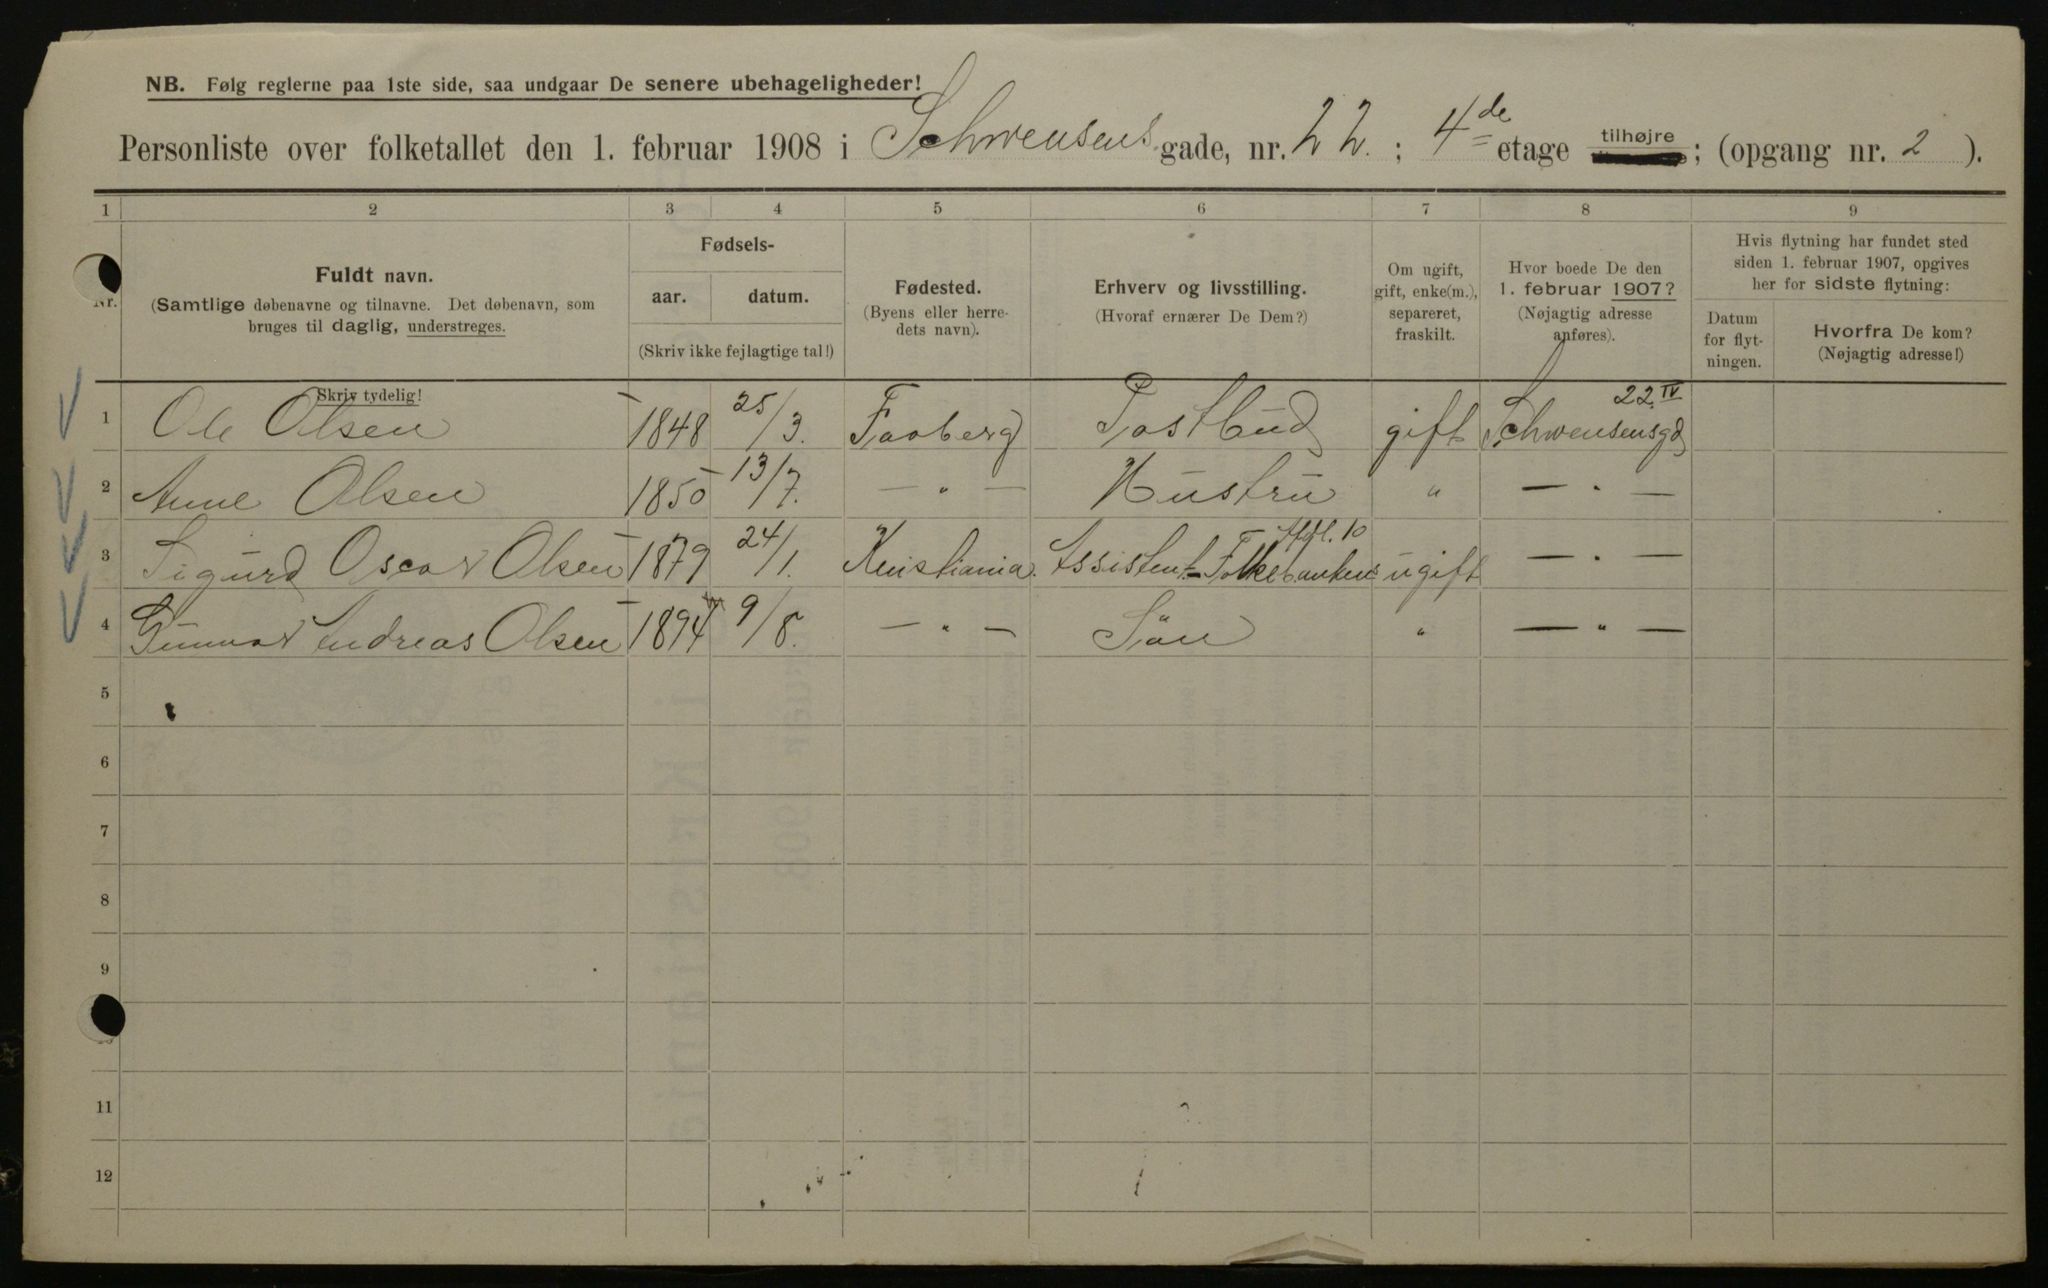 NB. Følg reglerne paa 1ste side, saa undgaar De senere ubehageligheder!
Personliste over folketallet den 1. februar 1908 i Schwensens gade, nr. 22. ; 4de etage tilhøjre ; (opgang nr. 2 ).
1 2 3 4 5 6 7 8 9
Nr.
Fuldt navn.
(Samtlige døbenavne og tilnavne. Det døbenavn, som
bruges til daglig, understreges.
Skriv tydelig!
Fødsels-
aar. datum.
(Skriv ikke fejlagtige tal!)
Fødested.
(Byens eller herre-
dets navn).
Erhverv og livsstilling.
(Hvoraf ernærer De Dem?)
Om ugift,
gift, enke(m.),
separeret,
fraskilt.
Hvor boede De den
1. februar 1907?
(Nøjagtig adresse
anføres).
Hvis flytning har fundet sted
siden 1. februar 1907, opgives
her for sidste flytning:
Datum
for flyt-
ningen.
Hvorfra De kom?
(Nøjagtig adresse!)
1 Ole Olsen 1848 25/3. Faaberg Postbud gift Schwensensgd 22 IV
2 Anne Olsen 1850 13/7. — " — Hustru " — " —
3 Sigurd Oscar Olsen 1879 24/1. Kristiania. Assistent - Folkebanken ugift — " —
4 Gunnar Andreas Olsen 1894 9/8. — " — Sön " — " —
5
6
7
8
9
11
12